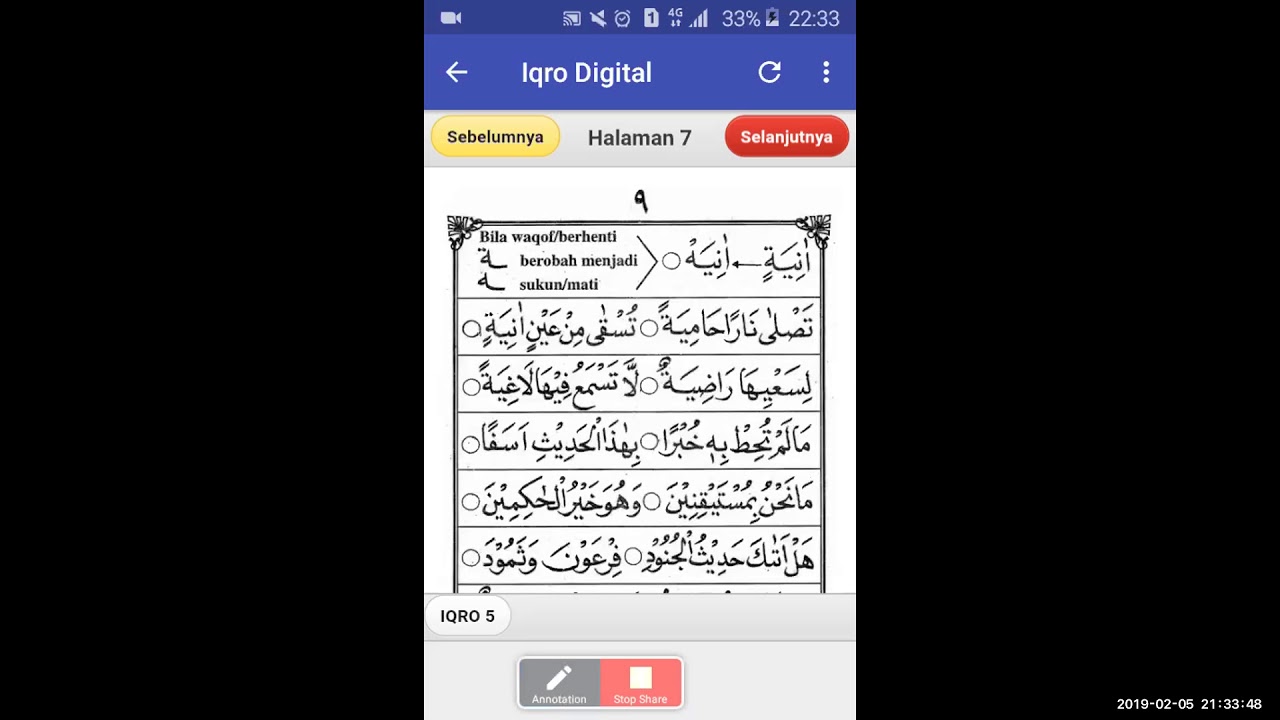 4G 33% 22:33
Iqro Digital
Sebelumnya Halaman 7 Selanjutnya
٩
اٰنِيَةٍ ← اٰنِيَهْ ○
Bila waqof/berhenti
ـة berobah menjadi
ـه sukun/mati
تَصْلٰى نَارًا حَامِيَةً ○ تُسْقٰى مِنْ عَيْنٍ اٰنِيَةٍ ○
لِسَعْيِهَا رَاضِيَةٌ ○ لَّا تَسْمَعُ فِيْهَا لَاغِيَةً ○
مَالَمْ تُحِطْ بِهٖ خُبْرًا ○ بِهٰذَا الْحَدِيْثِ اَسَفًا ○
مَا نَحْنُ بِمُسْتَيْقِنِيْنَ ○ وَهُوَ خَيْرُ الْحٰكِمِيْنَ ○
هَلْ اَتٰىكَ حَدِيْثُ الْجُنُوْدِ ○ فِرْعَوْنَ وَثَمُوْدَ ○
IQRO 5
Annotation Stop Share
2019-02-05 21:33:48